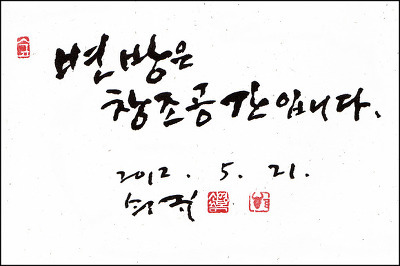 변방은
창조공간입니다.
2012. 5. 21.